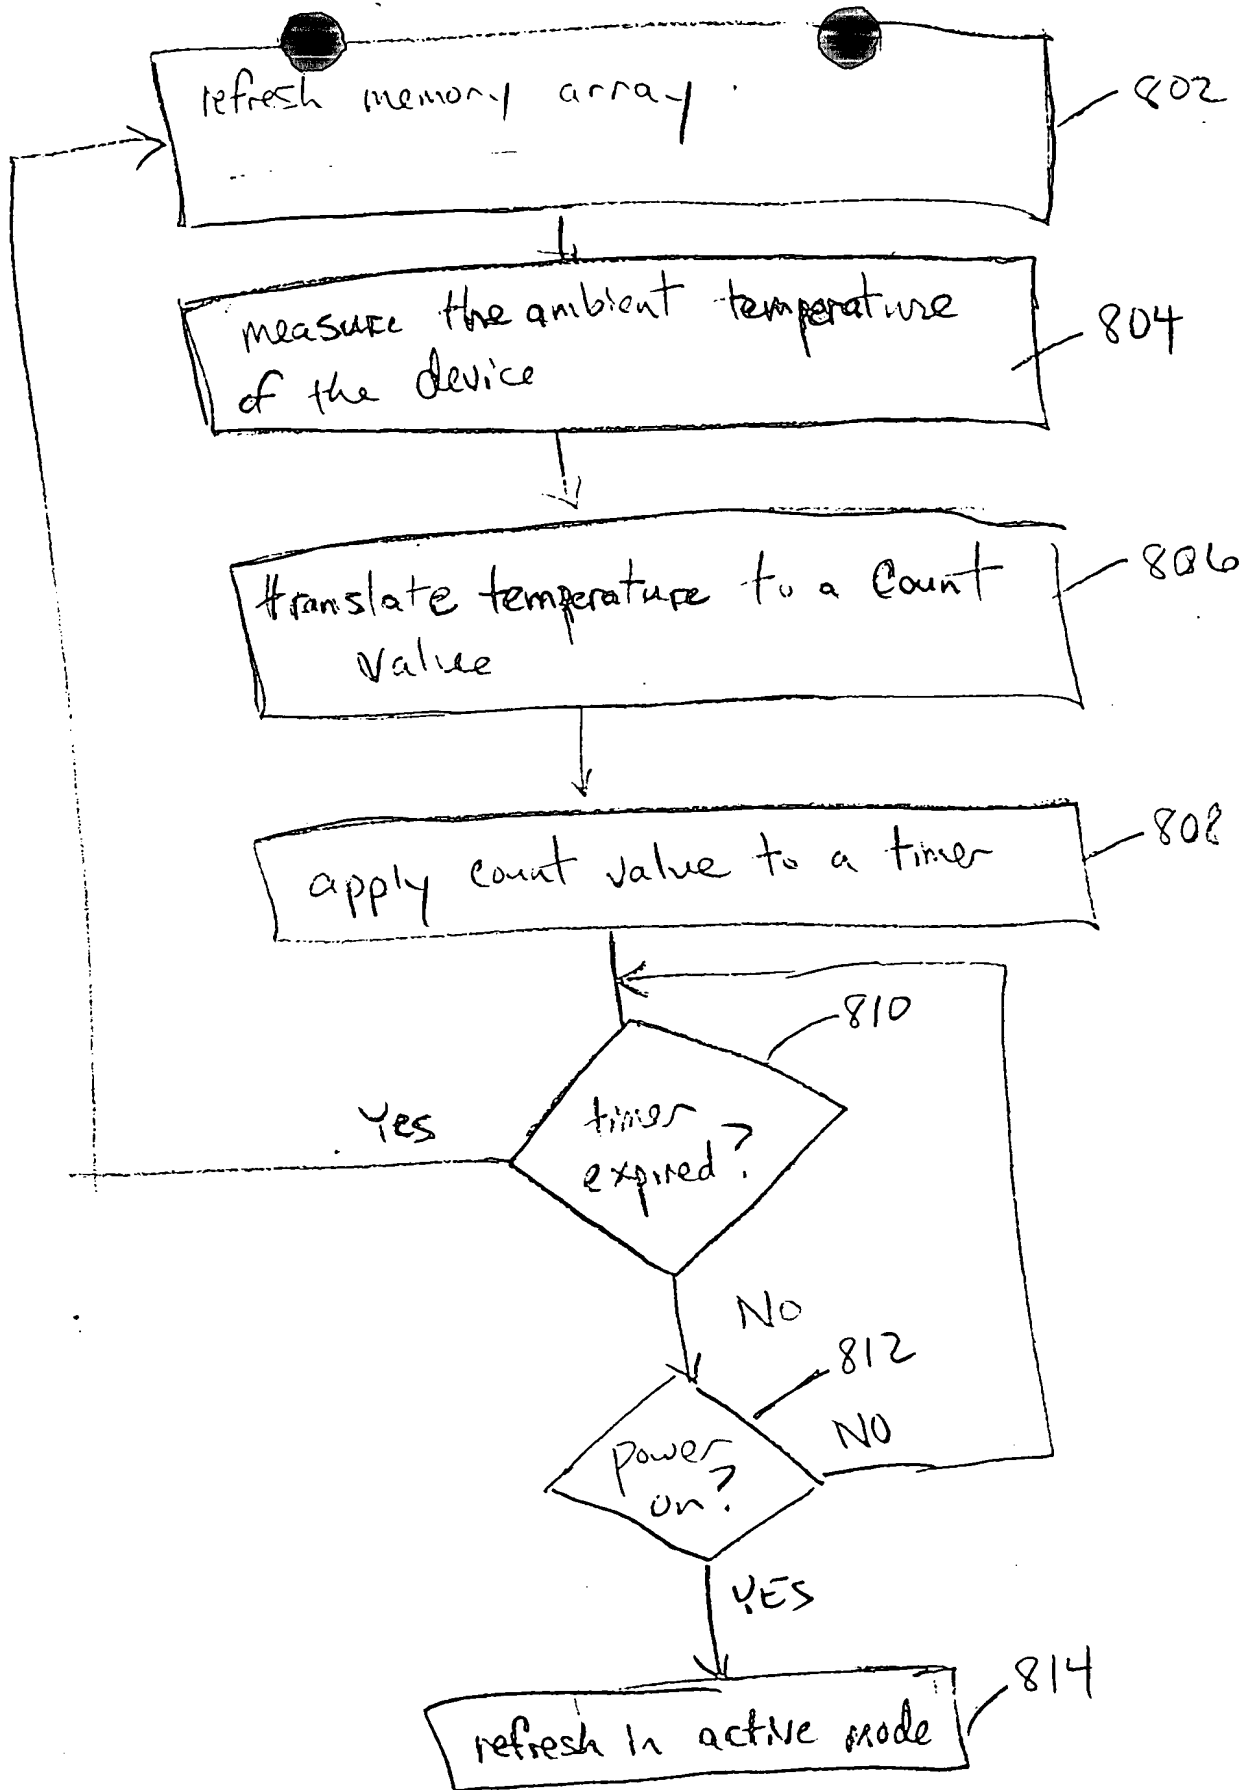 refresh memory array.
802
measure the ambient temperature
of the device
804
translate temperature to a count
value
806
apply count value to a timer
808
810
timer
expired?
Yes
NO
812
power
on?
NO
YES
814
refresh in active mode